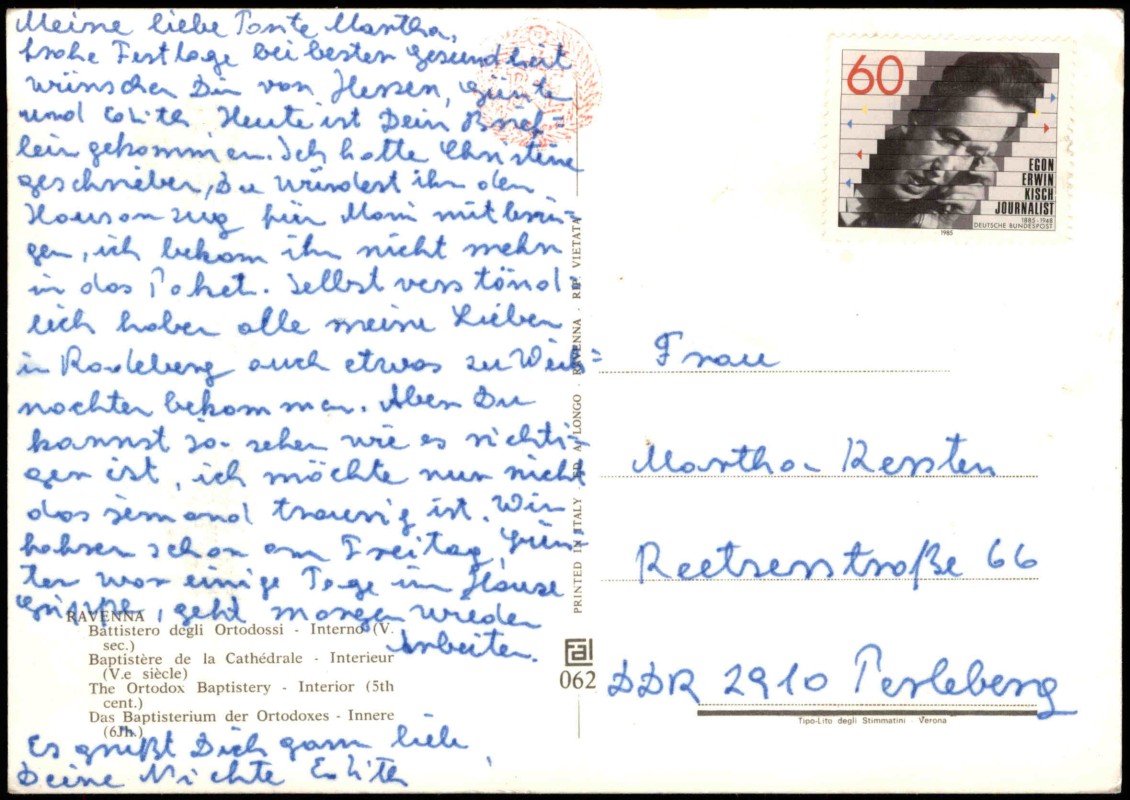 Meine liebe Tante Martha,
frohe Festtage bei besten Gesundheit
wünschen Dir von Herzen, Günte
und Edith Heute ist Dein Brief=
lein gekommen. Ich hatte Christine
geschrieben, Du würdest ihr den
Hausanzug für Mami mitbrin=
gen, ich bekam ihn nicht mehr
in das Paket. Selbst verständ=
lich haben alle meine Lieben
in Radeberg auch etwas zu Weih=
nachten bekommen. Aber Du
kannst ja sehen wie es richti=
gen ist, ich möchte nun nicht
das jemand traurig ist. Wir
fahren schon am Freitag, Gün=
ter war einige Tage im Hause
Grippe, geht morgen wieder
Arbeiten.
Es grüßt Dich ganz lieb
Deine Nichte Edith
RAVENNA
Battistero degli Ortodossi - Interno (V.
sec.)
Baptistère de la Cathédrale - Interieur
(V.e siècle)
The Ortodox Baptistery - Interior (5th
cent.)
Das Baptisterium der Ortodoxes - Innere
(6Jh.)
PRINTED IN ITALY - ED. A. LONGO - RAVENNA - RIP. VIETATA
062
60
EGON
ERWIN
KISCH
JOURNALIST
1885-1948
DEUTSCHE BUNDESPOST
1985
Frau
Martha Kersten
Reetzerstraße 66
DDR 2910 Perleberg
Tipo-Lito degli Stimmatini - Verona